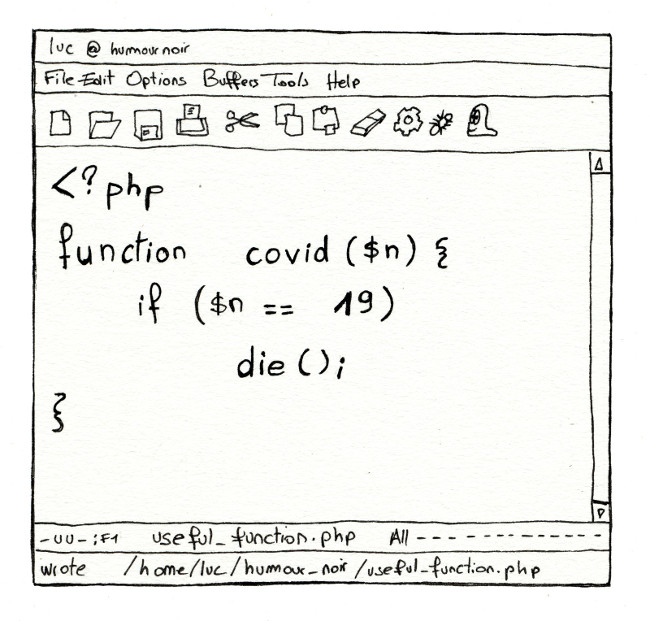 luc @ humour noir
File Edit Options Buffers Tools Help
<?php
function covid ($n) {
if ($n == 19)
die ();
}
-UU-:F1 useful_function.php All - - - - - - - - - - - - -
wrote /home/luc/humour_noir/useful_function.php